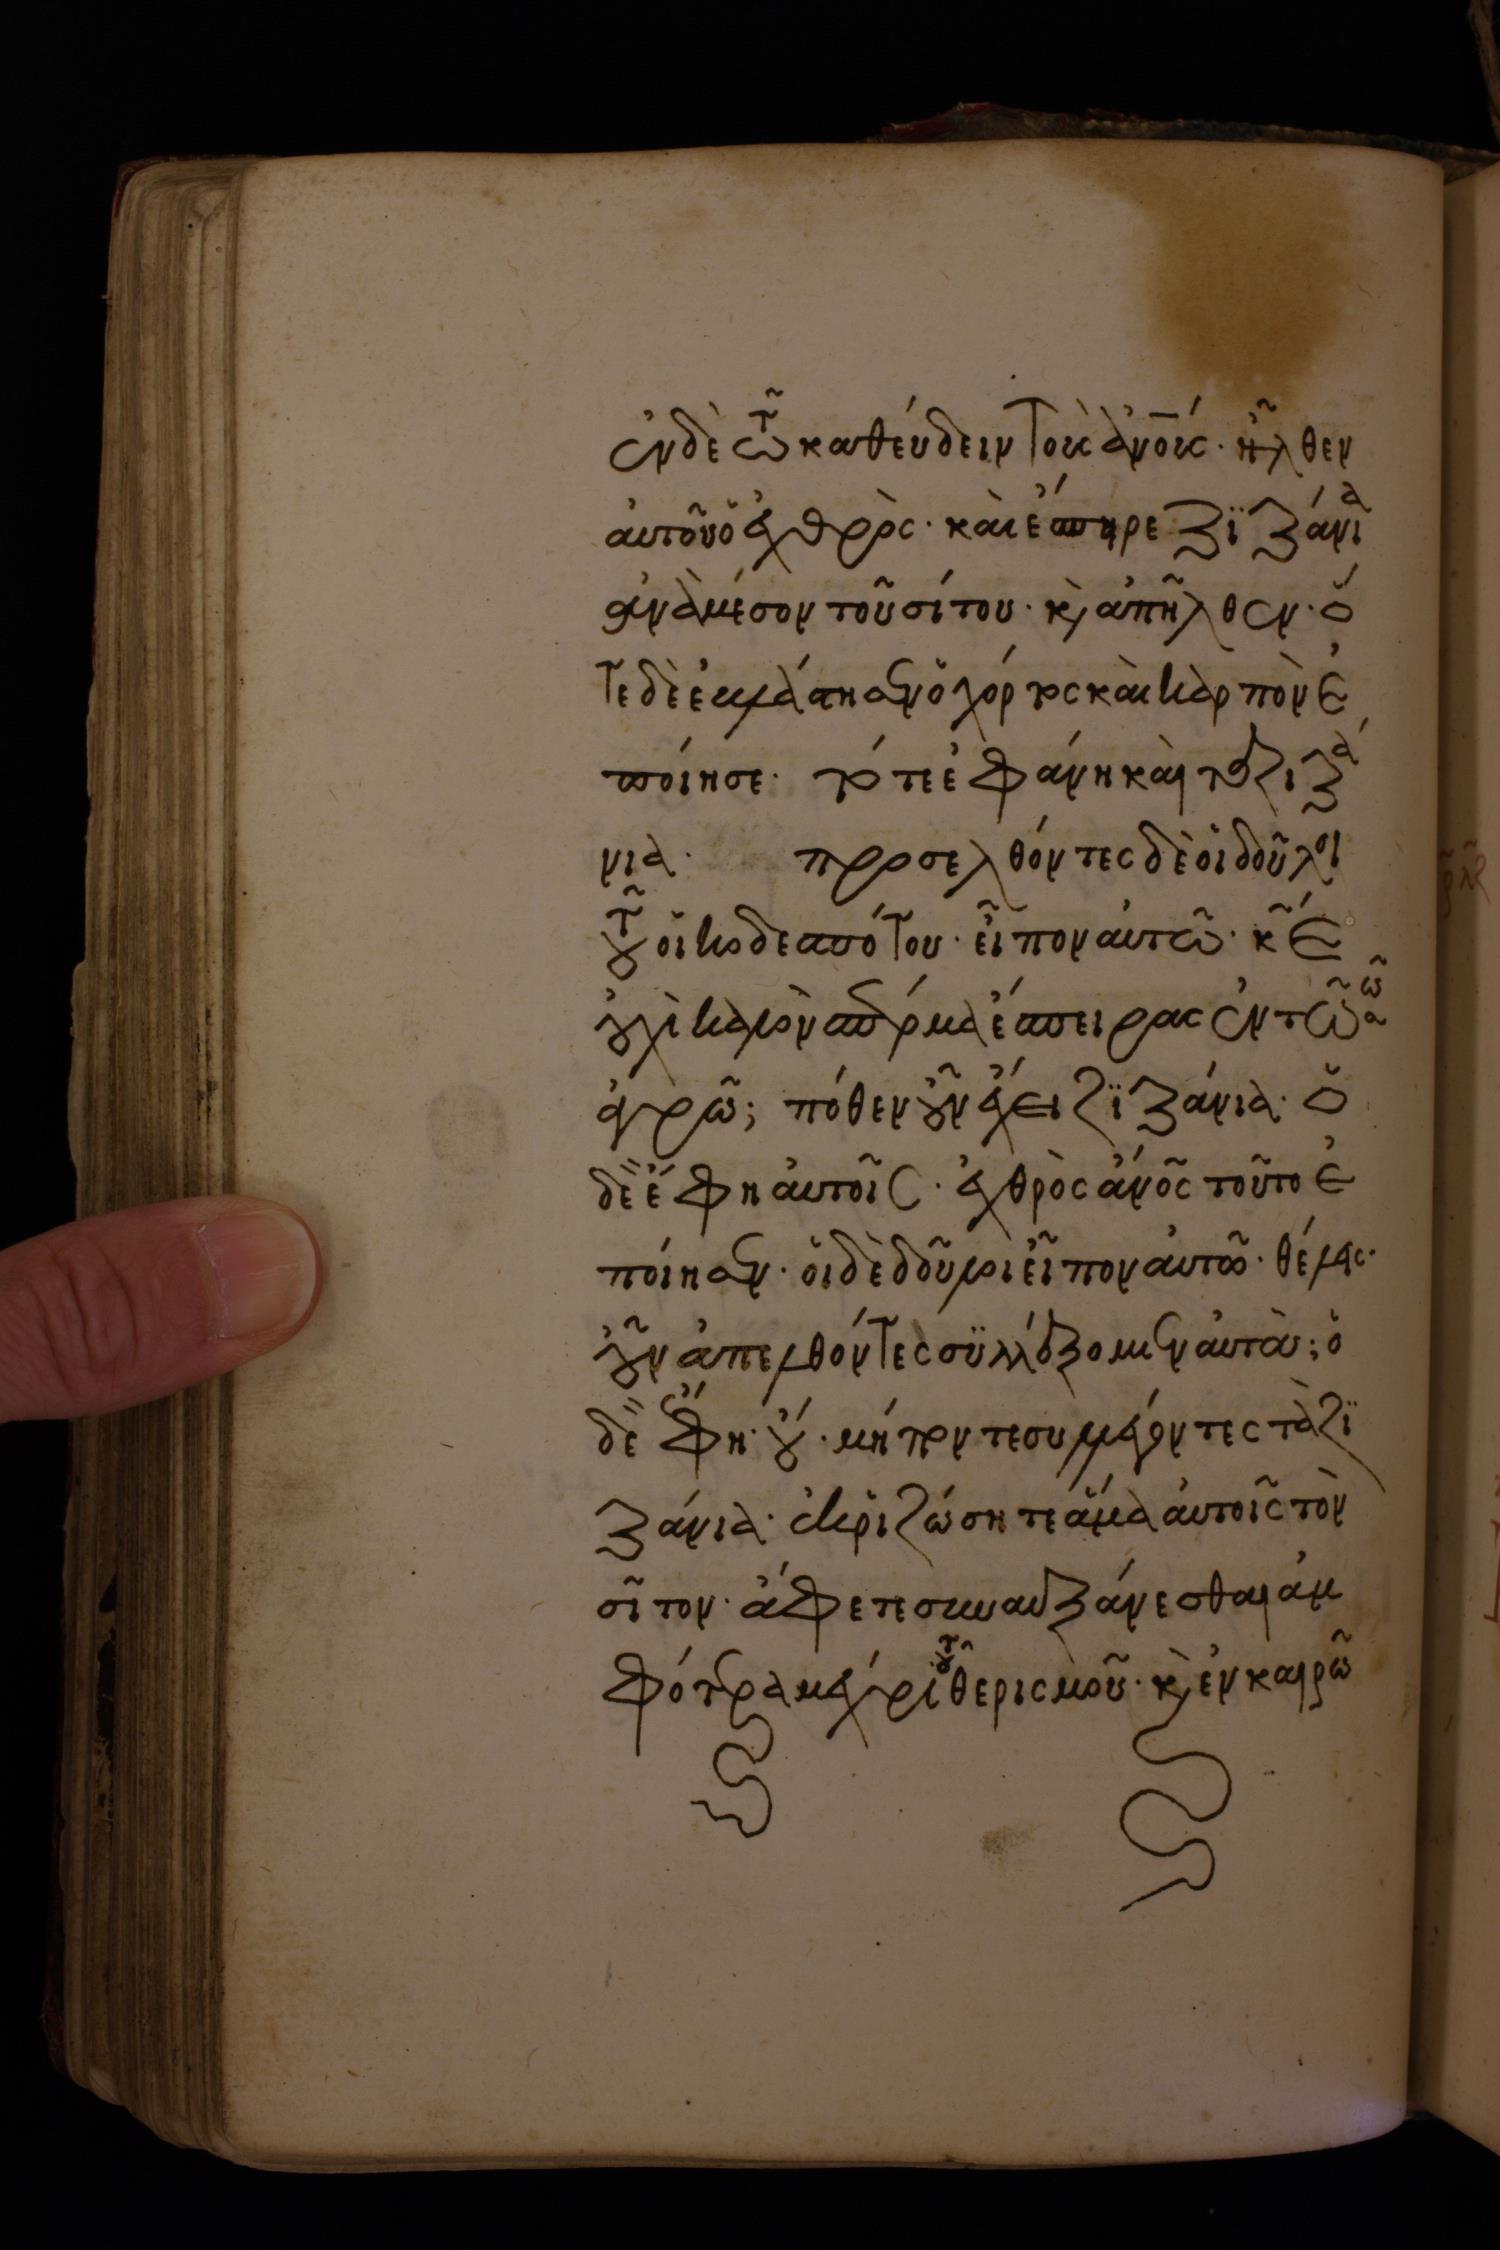 ἐν δὲ τῶ καθεύδειν τοὺς ἀνοὺς· ἦλθεν
αὐτοῦ ὁ ἐχθρὸς· καὶ ἔσπηρε ζιζάνια
ἀνὰ μέσον τοῦ σίτου· κ̀ ἀπῆλθεν· ὅ
τε δὲ ἐβλάστησεν ὁ χόρτος καὶ καρπὸν ἐ
ποίησε· τότε ἐφάνη καὶ τὰ ζιζά
νια· προσελθόντες δὲ οἱ δοῦλοι
τοῦ οἰκοδεσπότου· εἶπον αὐτῶ· κ̃έ
οὐχὶ καλὸν σπέρμα ἔσπειρας ἐν τῶ σῶ
ἀγρῶ; πόθεν οὖν ἔχει ζιζάνια· ὁ
δὲ ἔφη αὐτοῖς· ἐχθρὸς ἄνος τοῦτο ἐ
ποίησεν· οἱ δὲ δοῦλοι εἶπον αὐτῶ· θέλεις·
οὖν ἀπελθόντες συλλέξομεν αὐτὰ; ὁ
δὲ ἔφη· οὔ· μήποντε συλλέγοντες τὰ ζι
ζάνια· ἐκριζώσητε ἅμα αὐτοῖς τὸν
σῖτον· ἄφετε συναυξάνεσθαι ἀμ
φότερα μέχρι τοῦ θερισμοῦ· κ̀ ἐν καιρῶ